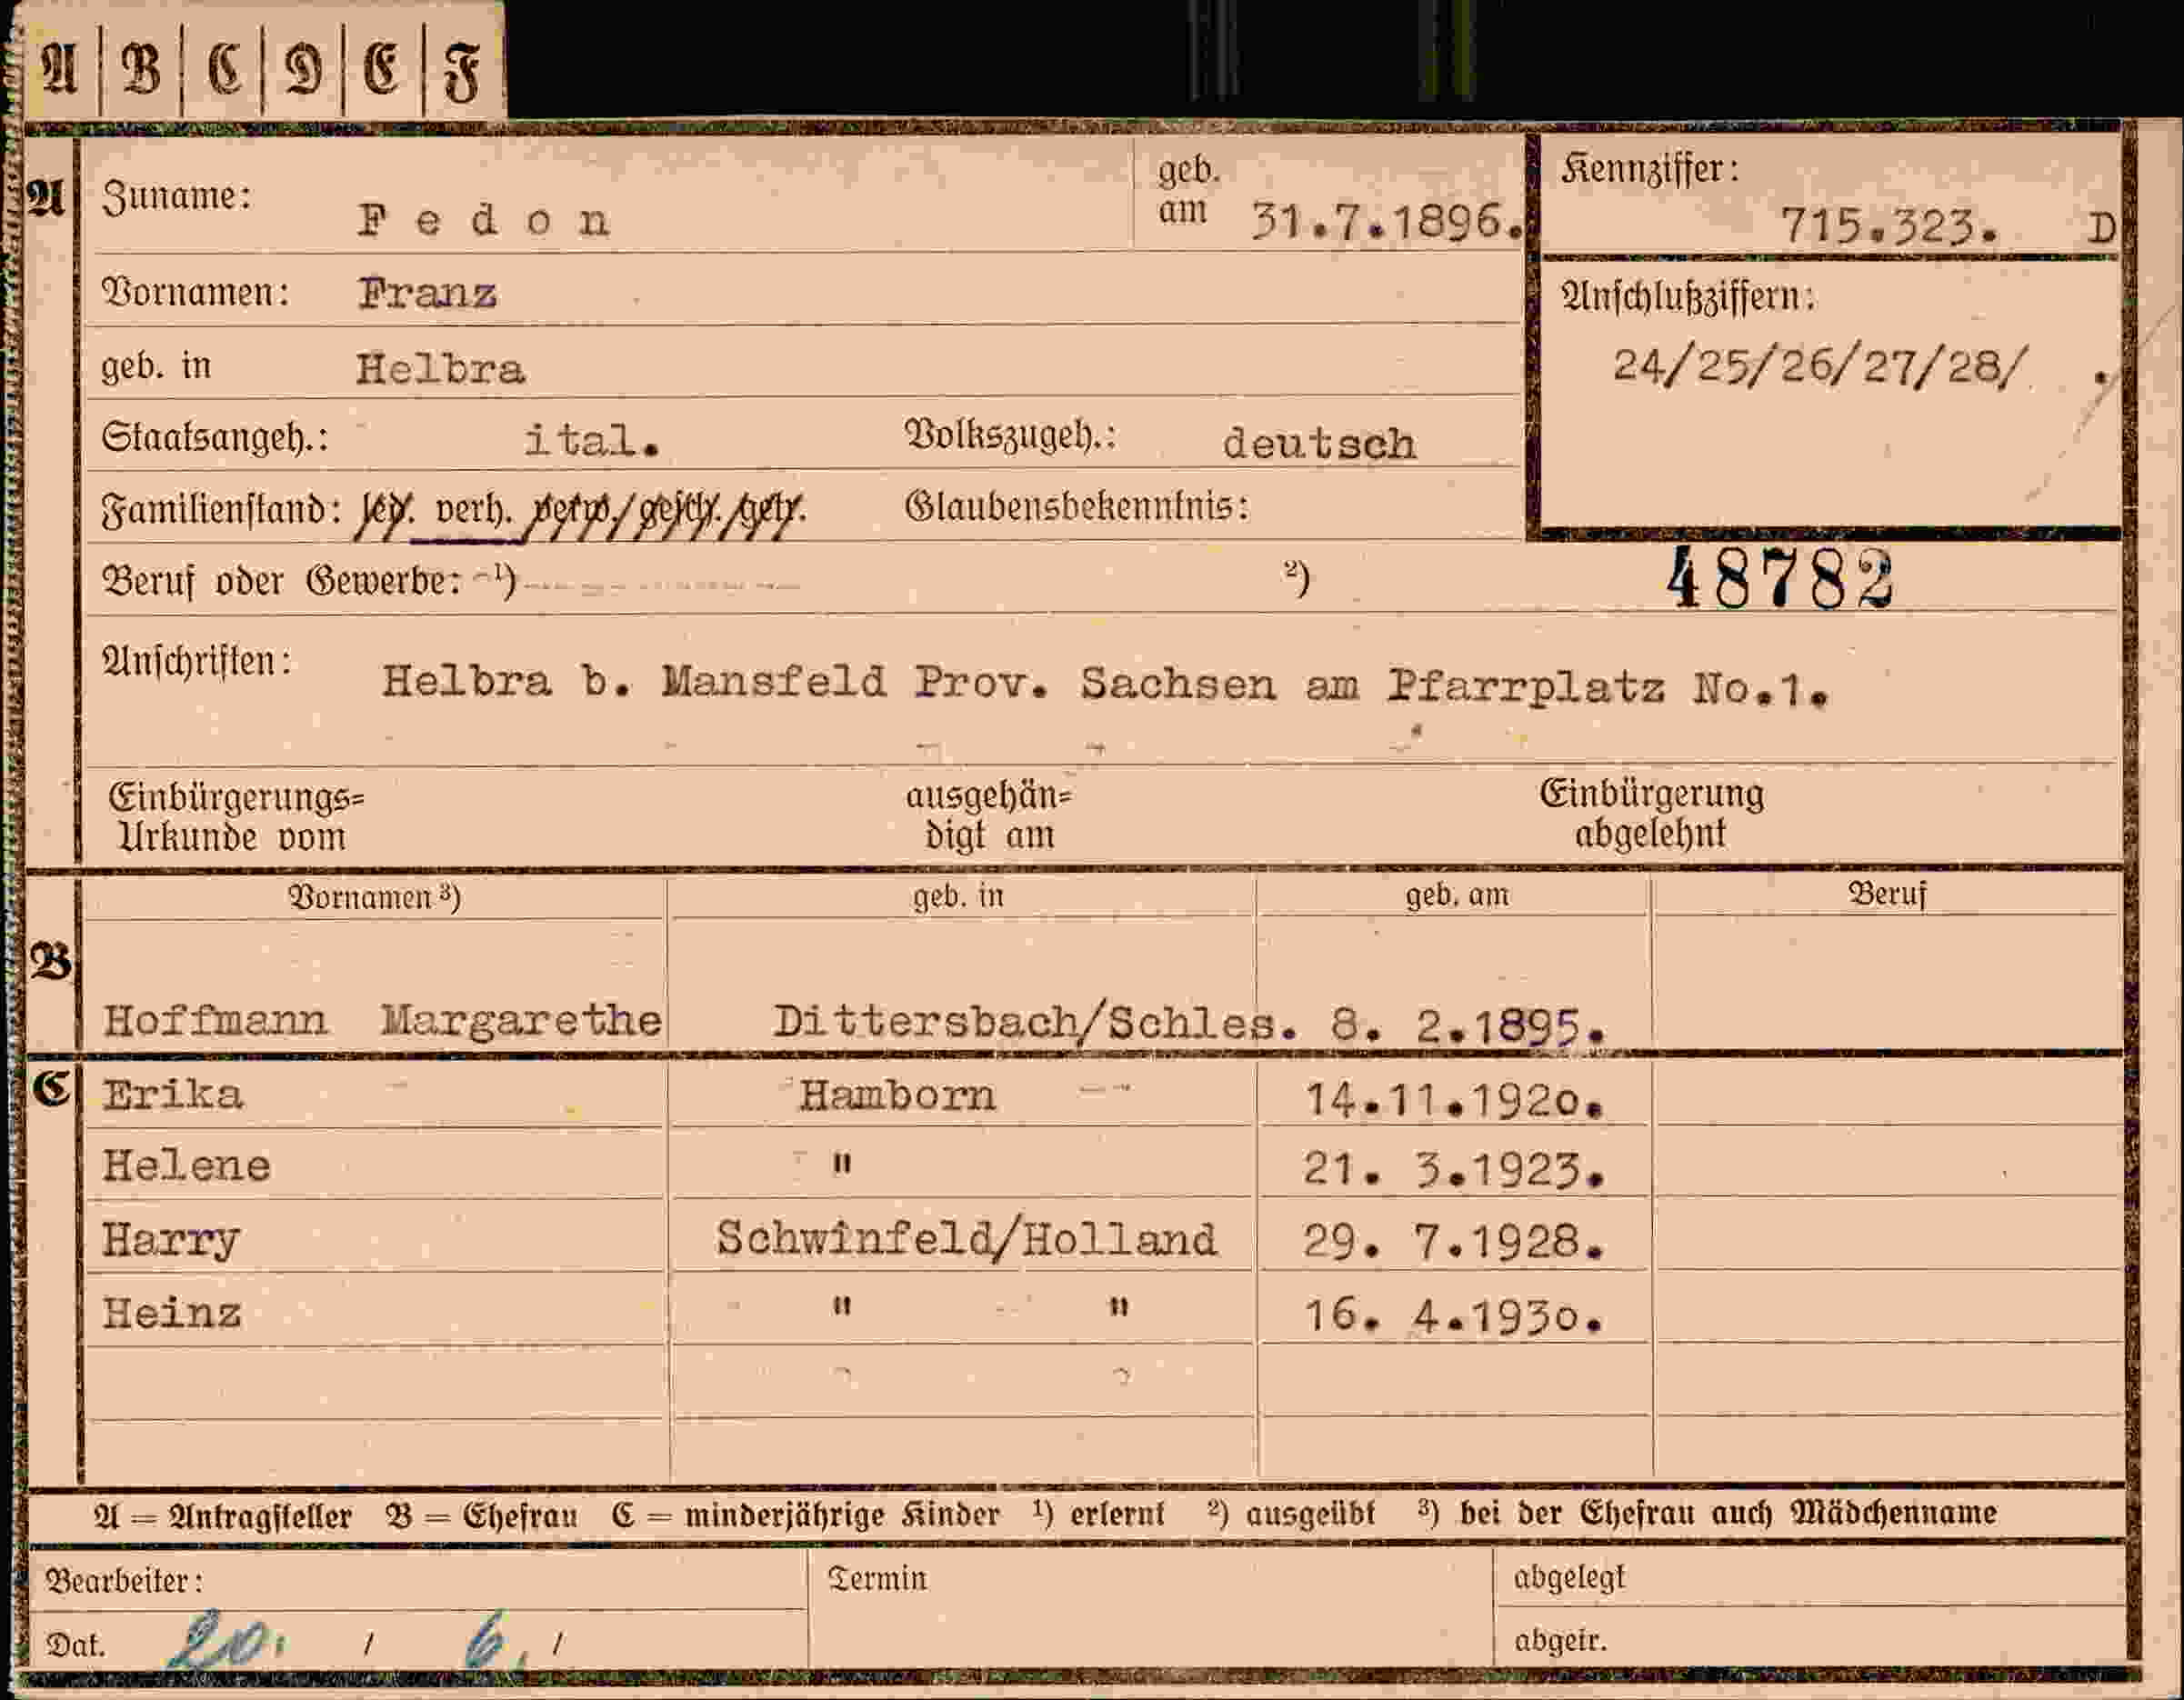 A | B | C | D | E | F
A
Zuname: Fedon
geb. am 31.7.1896.
Kennziffer:
715.323. D
Vornamen: Franz
Anschlußziffern:
24/25/26/27/28/ .
geb. in Helbra
Staatsangeh.: ital. Volkszugeh.: deutsch
Familienstand: led. verh. verw./gesch./getr. Glaubensbekenntnis:
Beruf oder Gewerbe: ¹) ²)
48782
Anschriften: Helbra b. Mansfeld Prov. Sachsen am Pfarrplatz No.1.
Einbürgerungs= ausgehän= Einbürgerung
Urkunde vom digt am abgelehnt
Vornamen ³) geb. in geb. am Beruf
B
Hoffmann Margarethe Dittersbach/Schles. 8. 2.1895.
C Erika Hamborn 14.11.1920.
Helene " 21. 3.1923.
Harry Schwinfeld/Holland 29. 7.1928.
Heinz " " 16. 4.1930.
A = Antragsteller B = Ehefrau C = minderjährige Kinder ¹) erlernt ²) ausgeübt ³) bei der Ehefrau auch Mädchenname
Bearbeiter: Termin abgelegt
Dat. 20. / 6. / abgetr.